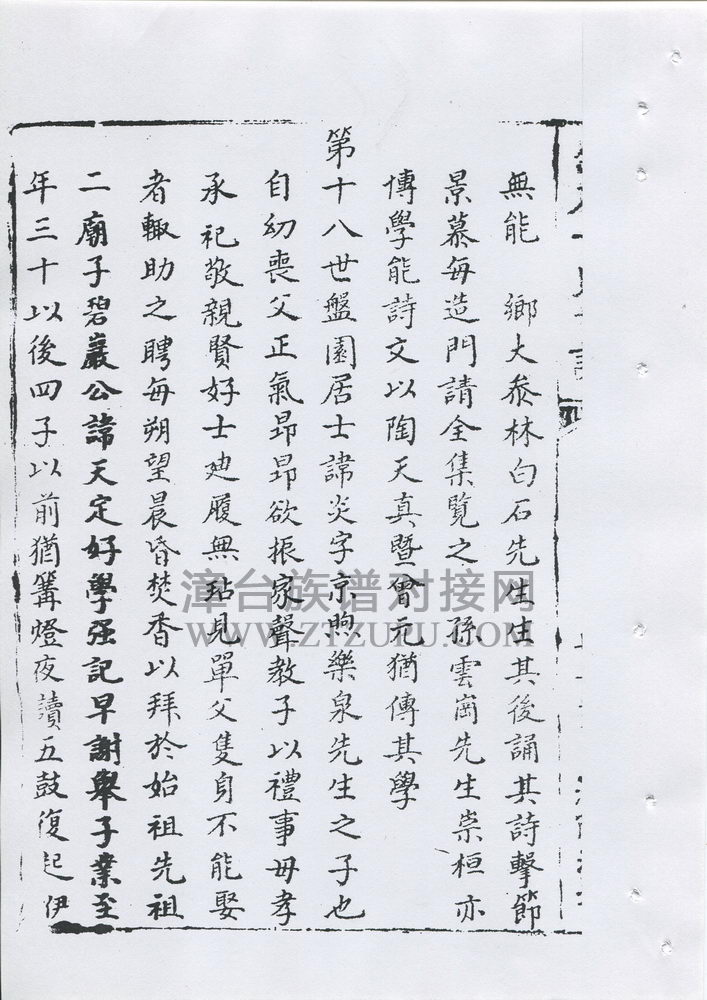 無能　鄉大叅林白石先生生其後誦其詩擊節
景慕每造門請全集覽之　孫雲崗先生崇桓亦
博學能詩文以陶天真暨曾元猶傳其學
第十八世盤園居士諱炎字京煦樂泉先生之子也
自幼喪父正氣昂昂欲振家聲教子以禮事毋孝
承祀敬親賢好士廸履無玷見單父隻身不能娶
者輙助之聘每朔望晨昏焚香以拜於始祖先祖
二廟子碧巖公諱天定好學强記早謝舉子業至
年三十以後四子以前猶篝燈夜讀五鼓復起伊
漳台族谱对接网
WWW.ZTZUPU.COM